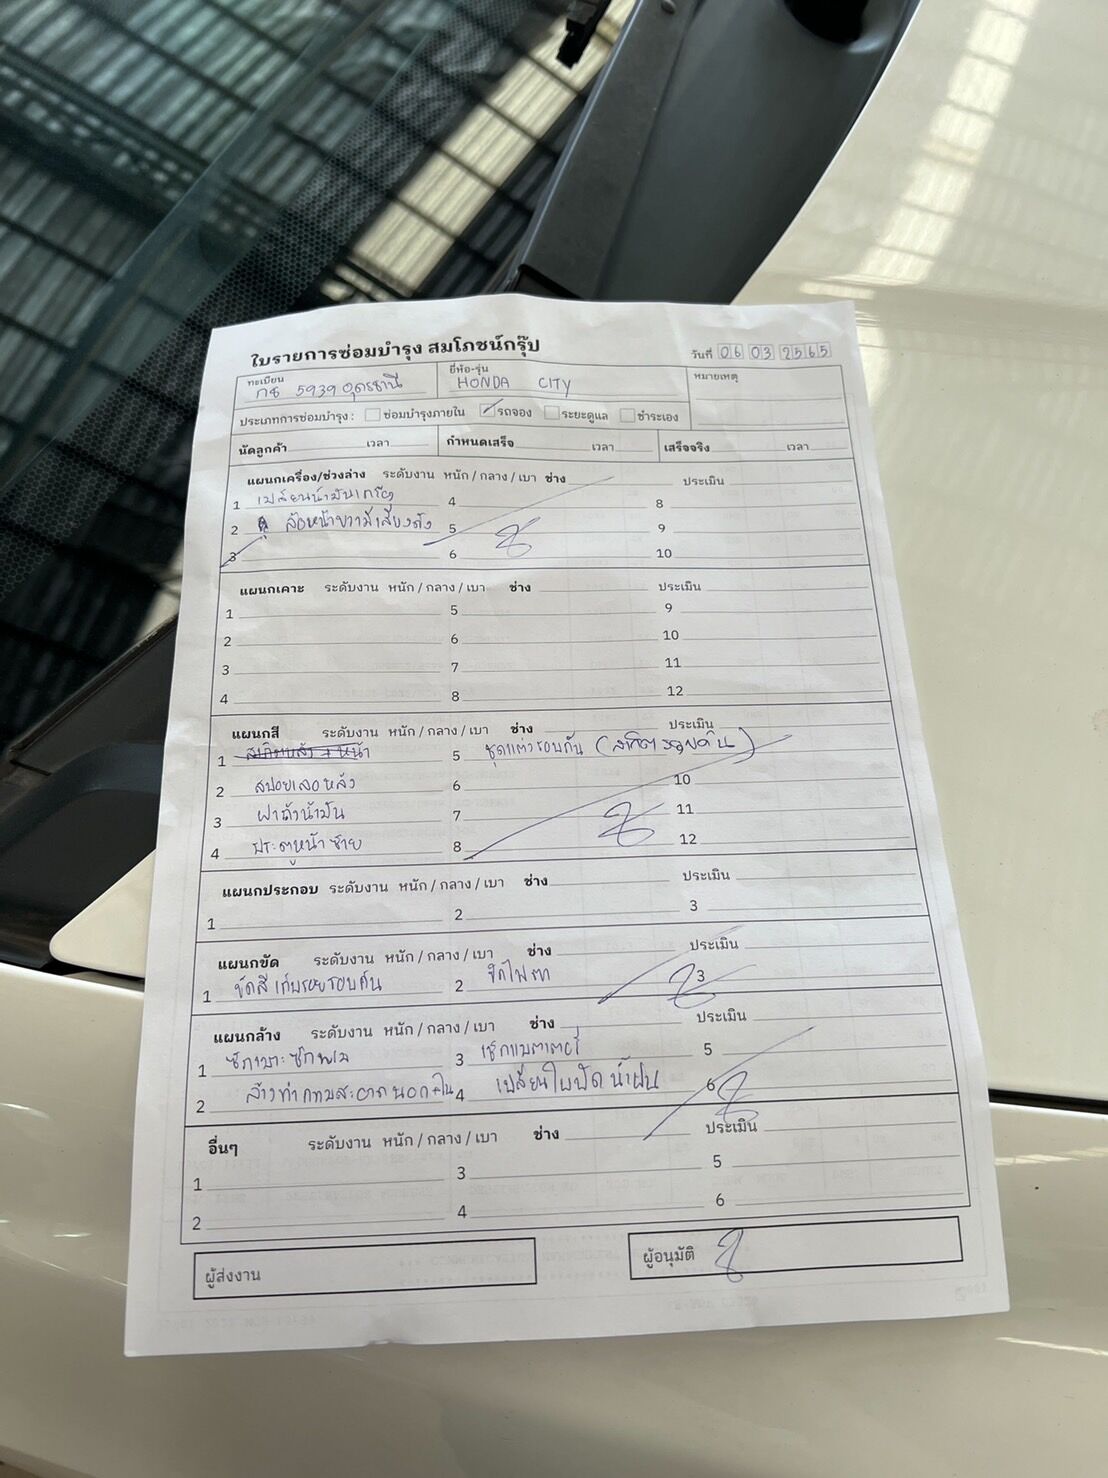 ใบรายการซ่อมบำรุง สมโภชน์กรุ๊ป
วันที่ 06 03 2565
ทะเบียน กธ 5939 อุดรธานี
ยี่ห้อ-รุ่น HONDA CITY
หมายเหตุ
ประเภทการซ่อมบำรุง : ซ่อมบำรุงภายใน รถจอง ระยะดูแล ชำระเอง
นัดลูกค้า เวลา กำหนดเสร็จ เวลา เสร็จจริง เวลา
แผนกเครื่อง/ช่วงล่าง ระดับงาน หนัก / กลาง / เบา ช่าง ประเมิน
1 เปลี่ยนน้ำมันเกียร์ 4 8
2 ล้อหน้าขวามีเสียงดัง 5 9
3 6 10
แผนกเคาะ ระดับงาน หนัก / กลาง / เบา ช่าง ประเมิน
1 5 9
2 6 10
3 7 11
4 8 12
แผนกสี ระดับงาน หนัก / กลาง / เบา ช่าง ประเมิน
1 สเกิตหลัง + หน้า 5 ชุดแต่งรอบคัน (สเกิตรอบคัน)
2 สปอยเลอหลัง 6 10
3 ฝาถังน้ำมัน 7 11
4 ประตูหน้าซ้าย 8 12
แผนกประกอบ ระดับงาน หนัก / กลาง / เบา ช่าง ประเมิน
1 2 3
แผนกขัด ระดับงาน หนัก / กลาง / เบา ช่าง ประเมิน
1 ขัดสีเก็บรอยรอบคัน 2 ขัดไฟ 3
แผนกล้าง ระดับงาน หนัก / กลาง / เบา ช่าง ประเมิน
1 ซักเบาะ ซักพรม 3 เช็กแบตเตอรี่ 5
2 ล้างทำความสะอาดนอก+ใน 4 เปลี่ยนใบปัดน้ำฝน 6
อื่นๆ ระดับงาน หนัก / กลาง / เบา ช่าง ประเมิน
1 3 5
2 4 6
ผู้ส่งงาน
ผู้อนุมัติ